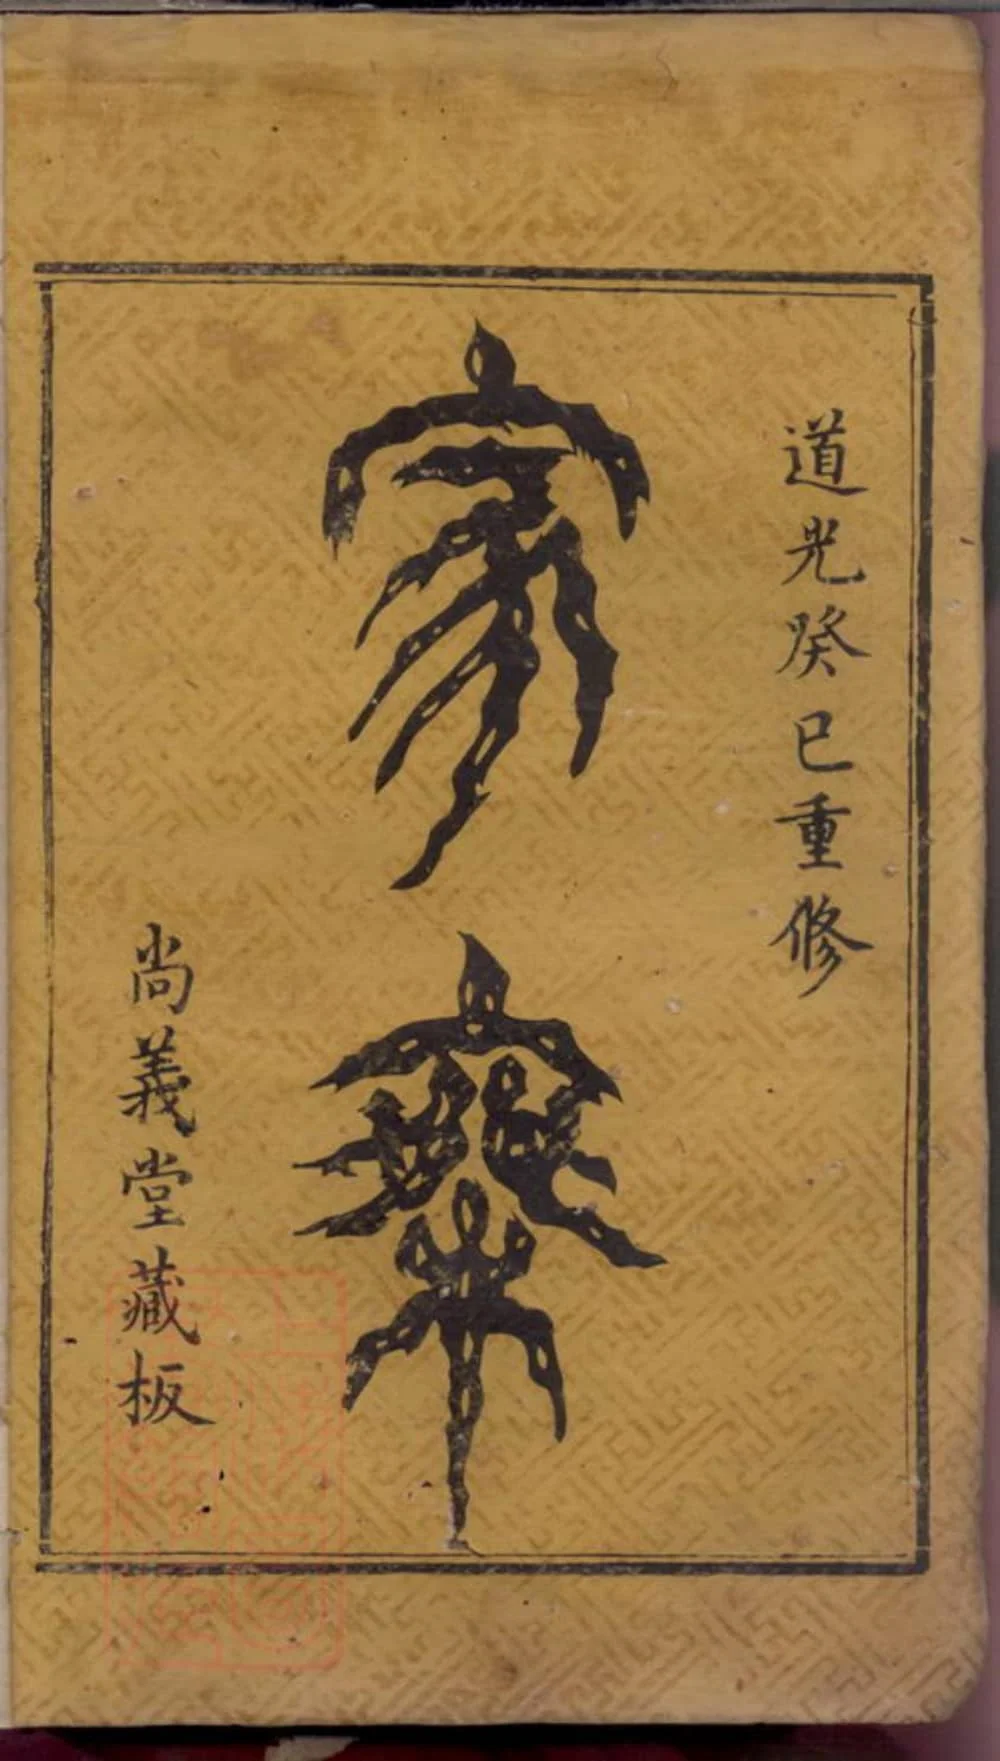 道光癸巳重修
家乘
尚義堂藏板